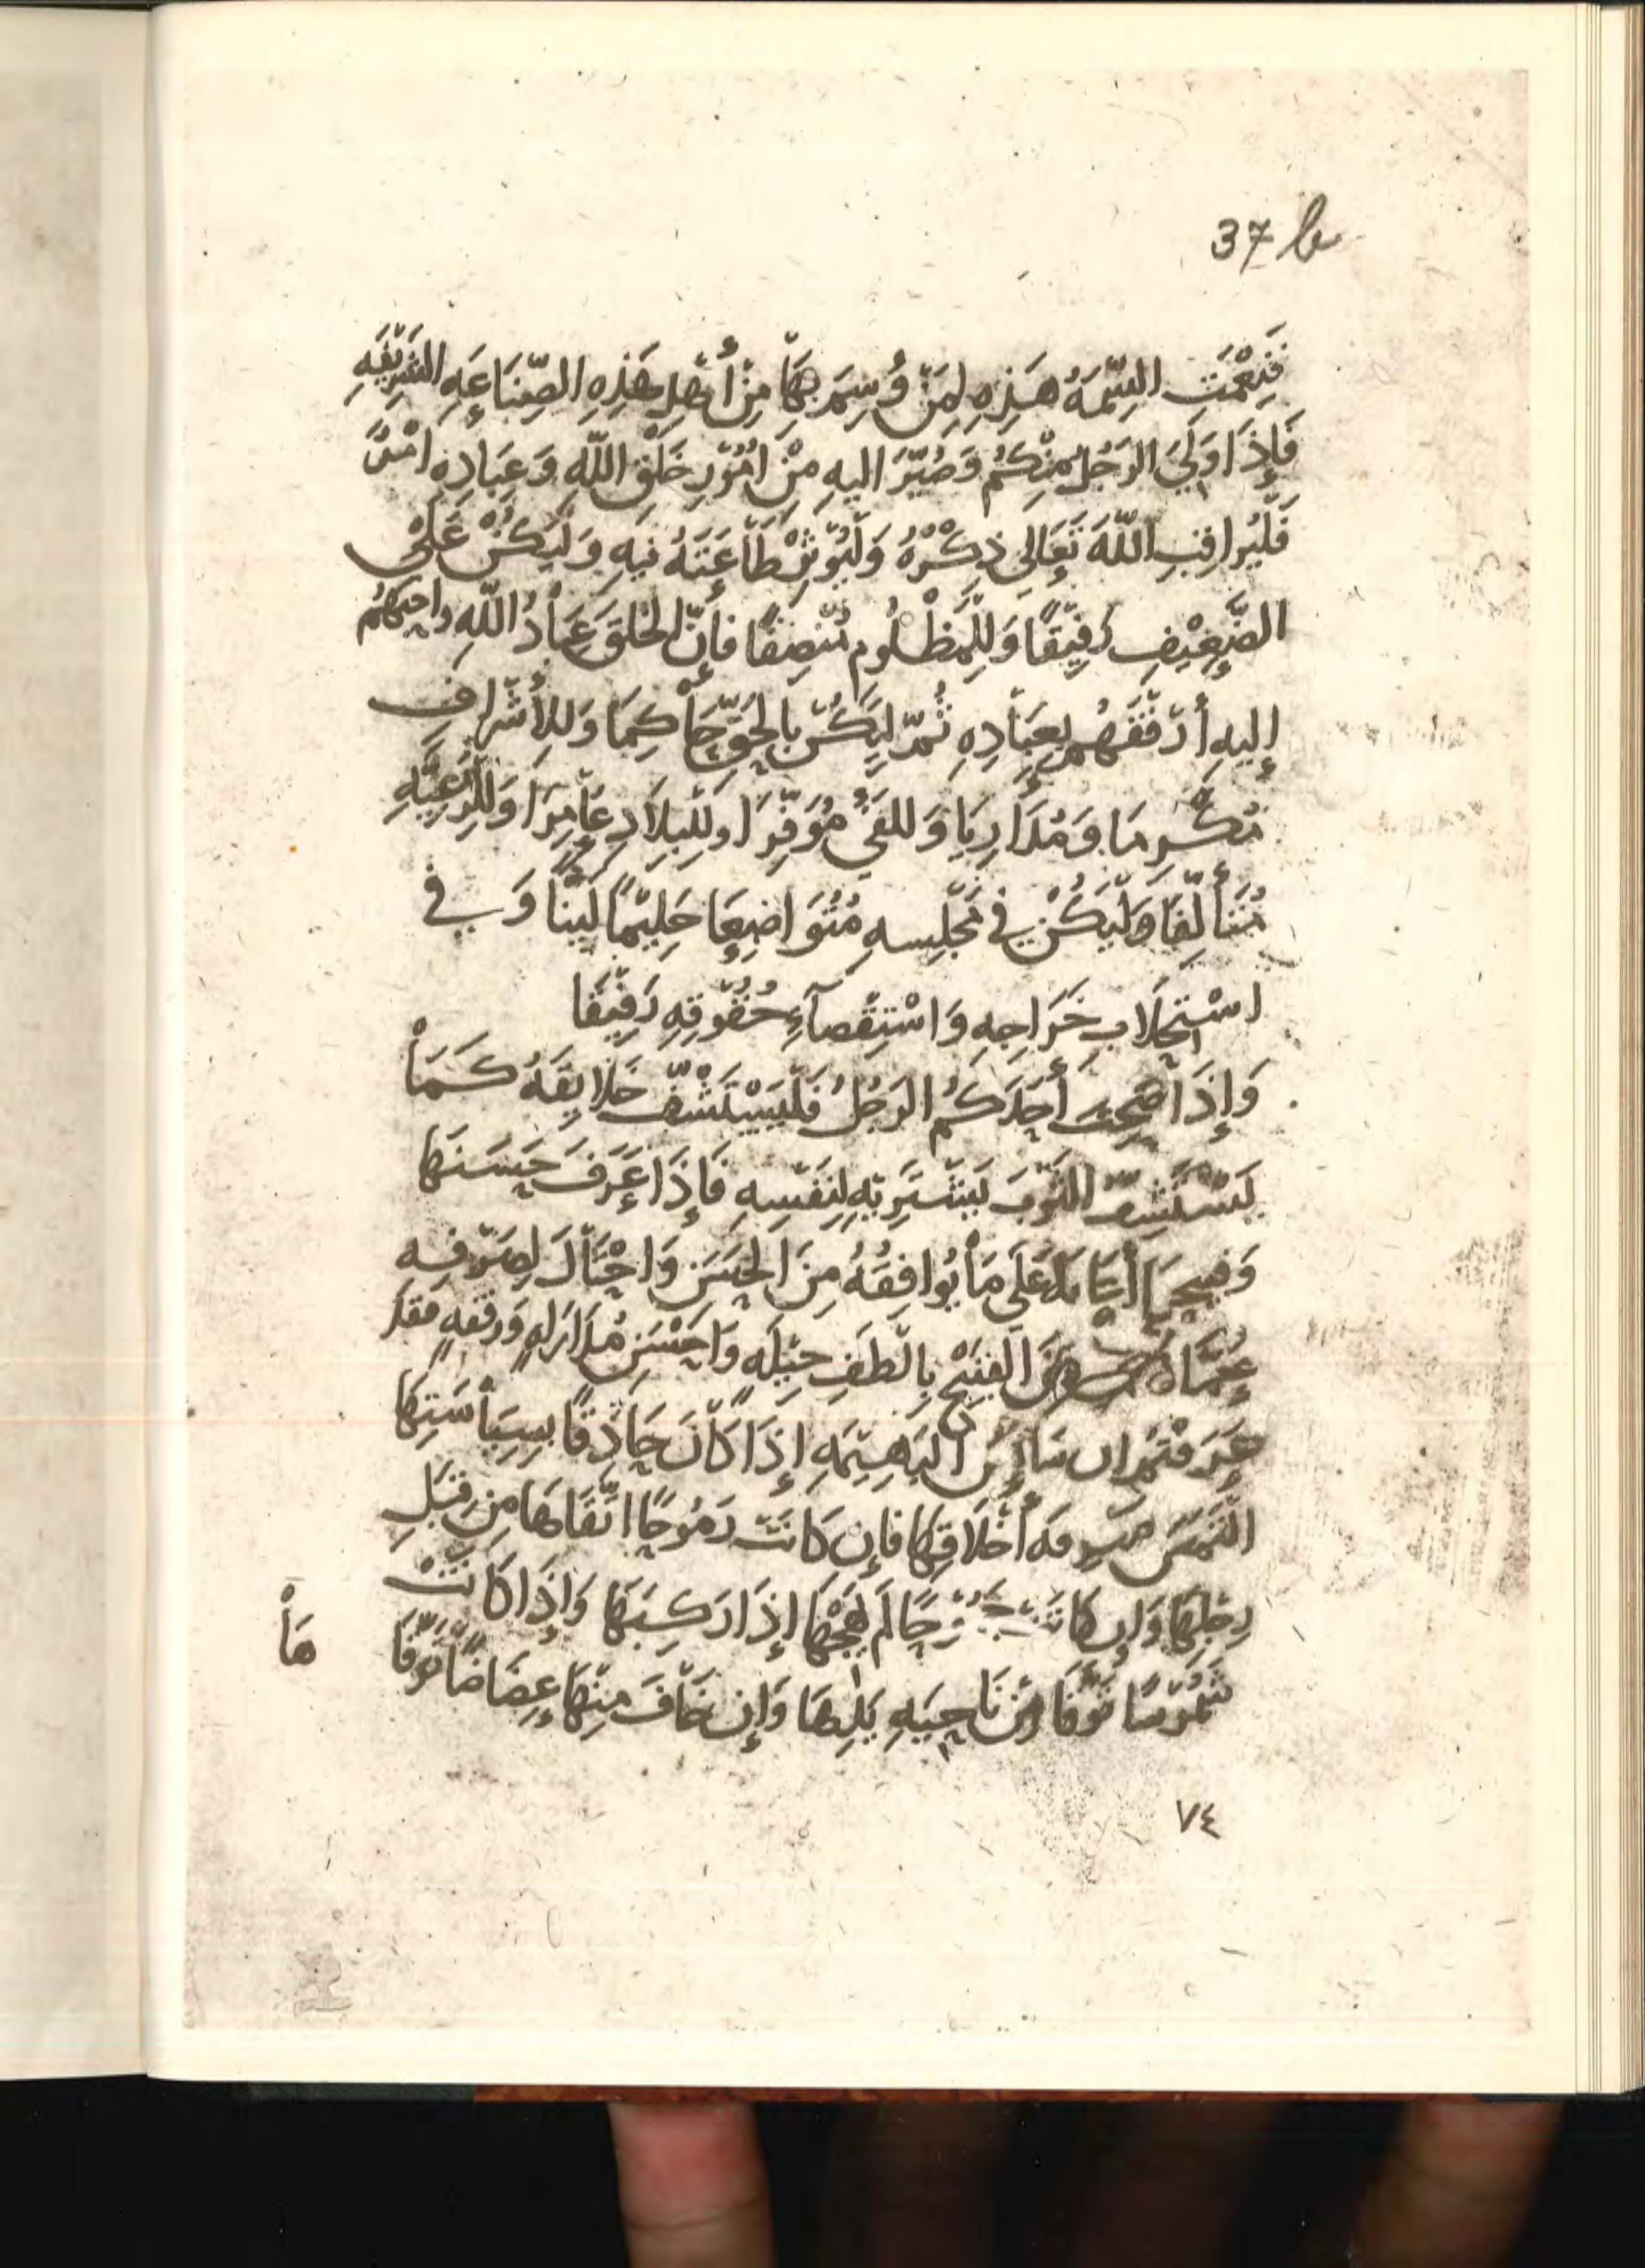 37 b
فَنِعْمَتِ السِّمَةُ هَذِهِ لِمَنْ وُسِمَ بِهَا مِنْ أَهْلِ هَذِهِ الصِّنَاعَةِ الشَّرِيْفَةِ
فَإِذَا وَلِيَ الرَجُلُ مِنْكُم وَصُيِّرَ اليهِ مِنْ امُوْرِ خَلْقِ اللّهِ وَعِبَادِهِ امْرٌ
فَلْيُراقِبِ اللّهَ تَعَالى ذِكْرُهُ وَلْيُوْثِرْ طَاعَتَهُ فيهِ وَلْيَكُنْ عَلَى
الضَّعِيْفِ رَفِيْقًا وَلِلْمَظْلُومِ مُنْصِفًا فَإِنّ الخَلقَ عِبَادُ اللّهِ واحبهُم
إليهِ أرْفَقَهُم بِعِبَادِهِ ثُمَّ لِيَكُنْ بِالحَقِّ حَاكِمًا وَلِلأَشْرافِ
مُكْرِمًا وَمُدَارِيًا وَللفَيْءِ مُوَفِّرًا ولِلْبِلاَدِ عَامِرًا وَلِلرَعِيَّةِ
مُتَأَلِّفًا وَلْيَكُنْ في مَجْلِسهِ مُتَوَاضِعًا حَلِيْمًا لَيِّنًا وَفي
اسْتِجْلَابِ خَرَاجِهِ وَاسْتِقْصَآءِ حُقُوْقِهِ رَفِيْقًا
وَإِذَا صَحِبَ أَحَدَكُمُ الرَجُلُ فَلْيَسْتَشْفِّ خَلَايِقَهُ كَمَا
يَسْتَشِفّ الثَوْبَ يَشْتَرِيْهِ لِنَفْسِهِ فَإِذَا عَرَفَ حَسَنَهَا
وَقبيحها أعَانَهُ عَلَى مَا يُوافِقُهُ مِنَ الحَسَنِ وَاحْتَالَ لِصَرْفِهِ
عَمَّا مِنَ القبيْح بِالْطَفِ حِيْلَةٍ وَاحْسَنِ مُدَارَاةٍ وَرفْقه فقد
عَرَفْتُم ان سَايِسَ البَهِيْمَةِ إذَا كَانَ حَاذِقًا بِسِيَاسَتِهَا
التَمَسَ مَعرِفَهَ أَخْلَاقِهَا فَإِن كَانَت رَمُوحًا اتَّقَاهَا مِن قِبَلِ
رِجْلِهَا وَإِن كَانَتْ جَمُوْحًا لَم يَهِجْهَا إِذَا رَكِبَهَا وَإِذَا كَانَتْ
شَمُوْسًا تَوَقَّا مِن نَاحِيَةِ يَدِهَا وَإِن خَافَ مِنْهَا عِضَاضًا تَوَقَّا
هَا
٧٤